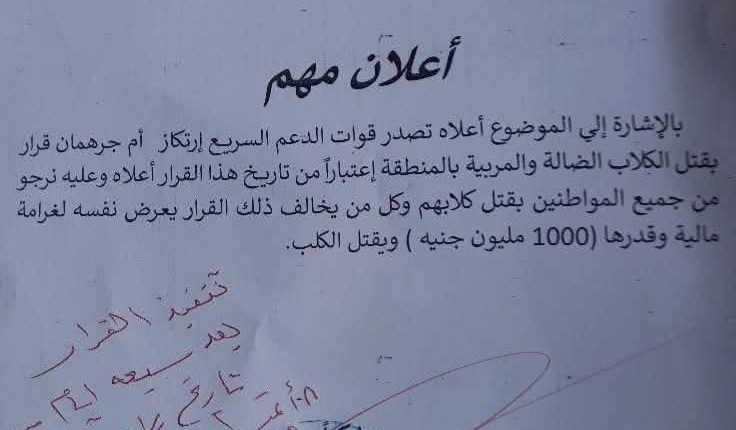 أعلان مهم
بالإشارة إلي الموضوع أعلاه تصدر قوات الدعم السريع إرتكاز أم جرهمان قرار
بقتل الكلاب الضالة والمربية بالمنطقة إعتباراً من تاريخ هذا القرار أعلاه وعليه نرجو
من جميع المواطنين بقتل كلابهم وكل من يخالف ذلك القرار يعرض نفسه لغرامة
مالية وقدرها (1000 مليون جنيه ) ويقتل الكلب.
تنفيذ القرار
بعد سبعه
تاريخ